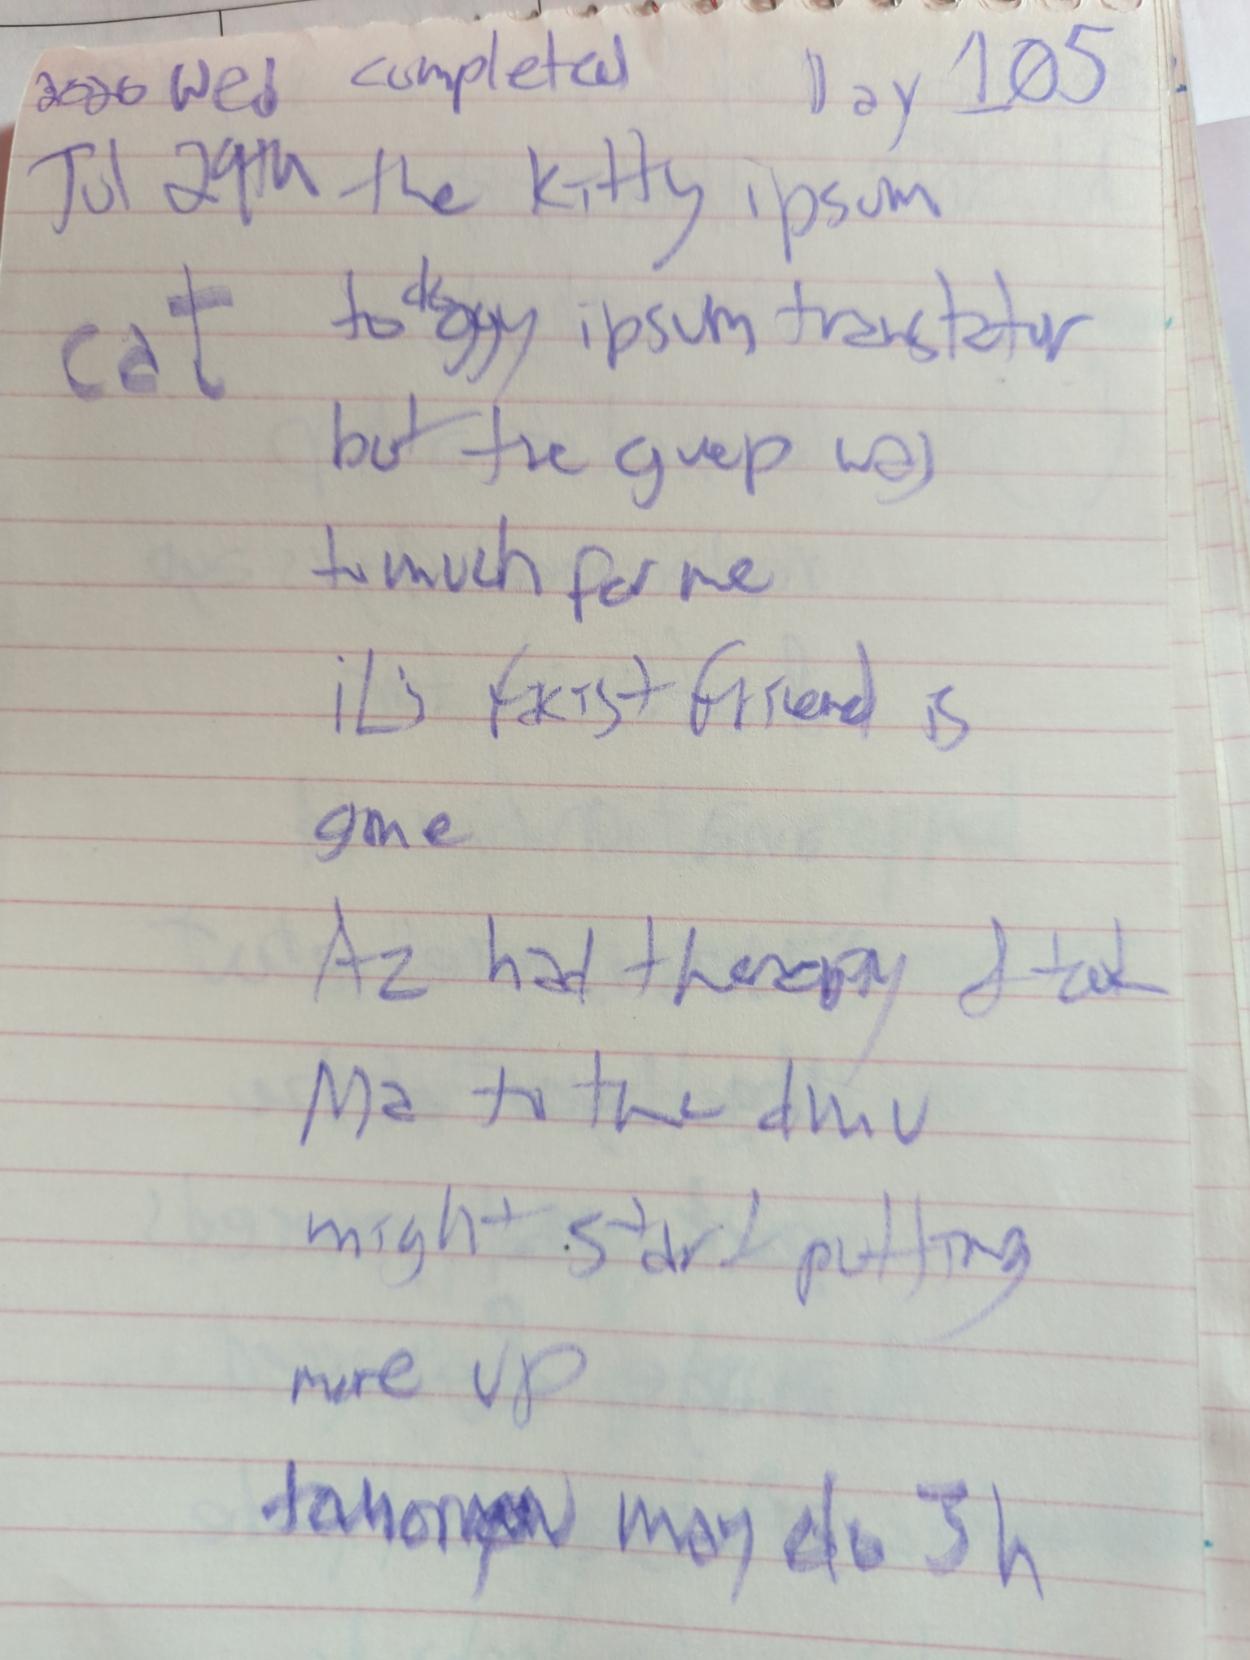 2020 Wed completed Day 105
Jul 29th the kitty ipsum
cat to doggy ipsum translator
but the grep was
to much for me
friend is
gone
Az had therapy I took
Ma to the dmv
might start putting
more up
may do